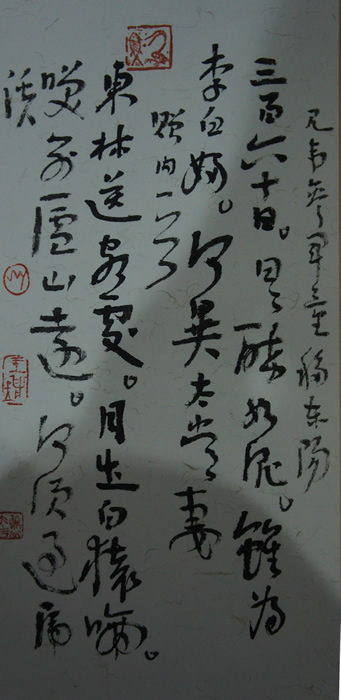 东阳
三百六十日。日日醉如泥。雖为
李白婦。何異太常妻
贈内一首
東林送客處。月出白猿啼。
笑别廬山遠。何须過虎
溪